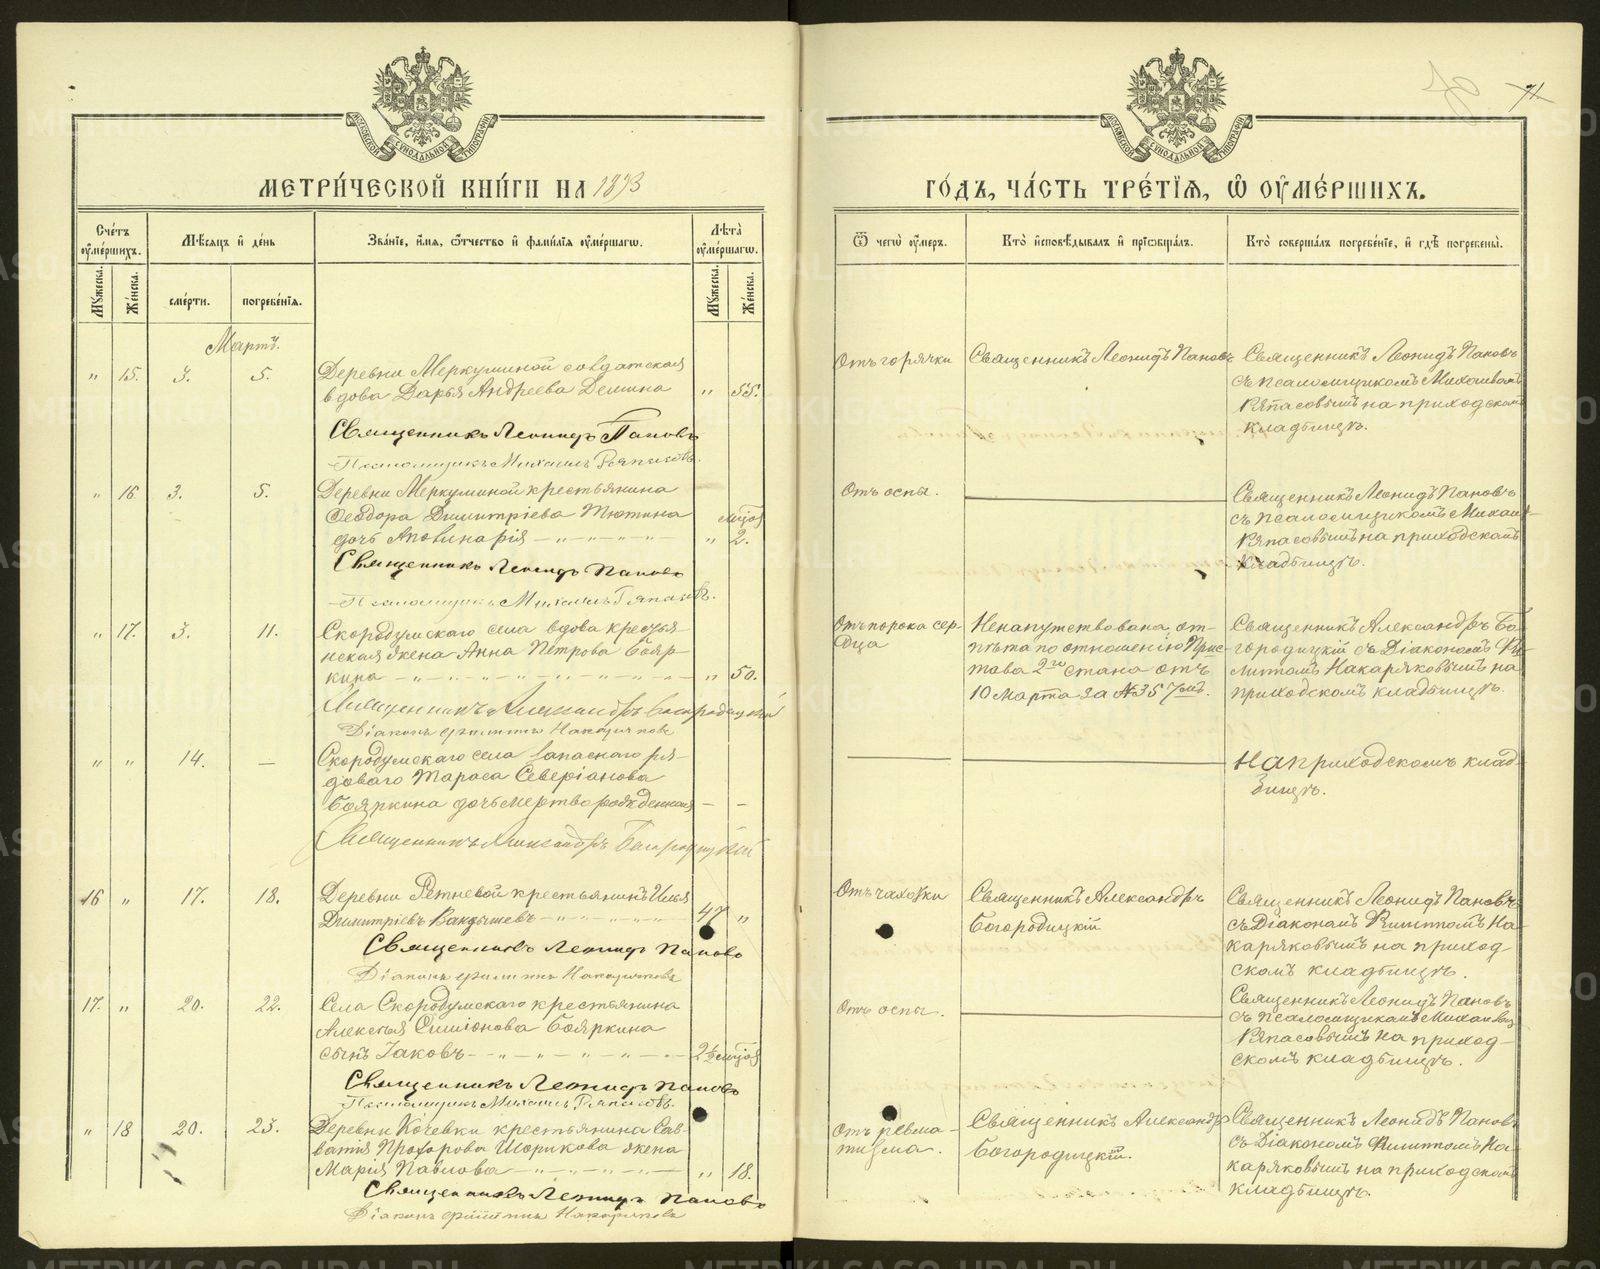 МОСКОВСКОЙ СУНОДАЛЬНОЙ ТИПОГРАФИИ
МЕТРИ́ЧЕСКОЙ КНИ́ГИ НА 1893
Сче́тъ ᲂу҆ме́ршихъ.
Мѣ́сяцъ и҆ де́нь
Зва́нїе, и҆́мя, ѻ҆́тчество и҆ фами́лїя ᲂу҆ме́ршагѡ.
Лѣ́та ᲂу҆ме́ршагѡ.
Мꙋ́жеска. Же́нска. сме́рти. погребе́нїя. Мꙋ́жеска. Же́нска.
Мартъ.
" 15. 3. 5. Деревни Меркушиной солдатская
вдова Дарья Андреева Демина " 55.
Священникъ Леонидъ Паповъ
Псаломщикъ Михаилъ Ряпасовъ.
" 16 3. 5. Деревни Меркушиной крестьянина
Ѳеодора Димитріева Тютина мѣся
дочь Аполинарія " 2.
Священникъ Леонидъ Паповъ
Псаломщикъ Михаилъ Ряпасовъ.
" 17. 3. 11. Скородумскаго села вдова крестья-
нская жена Анна Петрова Бояр-
кина " 50.
Священникъ Александръ Богородицкій
Діаконъ Филиппъ Накаряковъ
" " 14. — Скородумскаго села запаснаго ря-
доваго Тараса Северіанова
Бояркина дочь мертворожденная — —
Священникъ Александръ Богородицкій
16 " 17. 18. Деревни Ретневой крестьянинъ Илья
Димитріевъ Вандышевъ 47 "
Священникъ Леонидъ Паповъ
Діаконъ Филиппъ Накаряковъ
17. " 20. 22. Села Скородумскаго крестьянина
Алексѣя Симіонова Бояркина
сынъ Іаковъ 2½ мѣся
Священникъ Леонидъ Паповъ
Псаломщикъ Михаилъ Ряпасовъ.
" 18 20. 23. Деревни Кочевки крестьянина Сав-
ватія Прохорова Шорикова жена
Марія Павлова " 18.
Священникъ Леонидъ Паповъ
Діаконъ Филиппъ Накаряковъ
71
МОСКОВСКОЙ СУНОДАЛЬНОЙ ТИПОГРАФИИ
ГО́ДЪ, ЧА́СТЬ ТРЕ́ТЇѦ, Ѡ҆ ОУ҆МЕ́РШИХЪ.
Ѿ чегѡ̀ ᲂу҆́меръ.
Кто̀ и҆сповѣ́дывалъ и҆ прїѡбща́лъ.
Кто̀ соверша́лъ погребе́нїе, и҆ гдѣ̀ погребены̀.
Отъ горячки Священникъ Леонидъ Паповъ Священникъ Леонидъ Паповъ
съ псаломщикомъ Михаиломъ
Ряпасовымъ на приходскомъ
кладбищѣ.
Отъ оспы. Священникъ Леонидъ Паповъ
съ псаломщикомъ Михаил
Ряпасовымъ на приходскомъ
кладбищѣ.
Отъ порока сер- Ненапутствована, от- Священникъ Александръ Бо-
дца пѣта по отношенію Прис- городицкій съ Діакономъ Фи-
тава 2го стана отъ липпомъ Накаряковымъ на
10 марта за № 357мъ. приходскомъ кладбищѣ.
На приходскомъ клад-
бищѣ.
Отъ чахотки Священникъ Александръ Священникъ Леонидъ Паповъ
Богородицкій съ Діакономъ Филиппомъ На-
каряковымъ на приход
скомъ кладбищѣ.
Отъ оспы. Священникъ Леонидъ Паповъ
съ псаломщикомъ Михаилом
Ряпасовымъ на приход-
скомъ кладбищѣ.
Отъ ревма- Священникъ Александръ Священникъ Леонидъ Паповъ
тизма. Богородицкій. съ Діакономъ Филиппомъ На-
каряковымъ на приходском
кладбищѣ.
METRIKI.GASO-URAL.RU